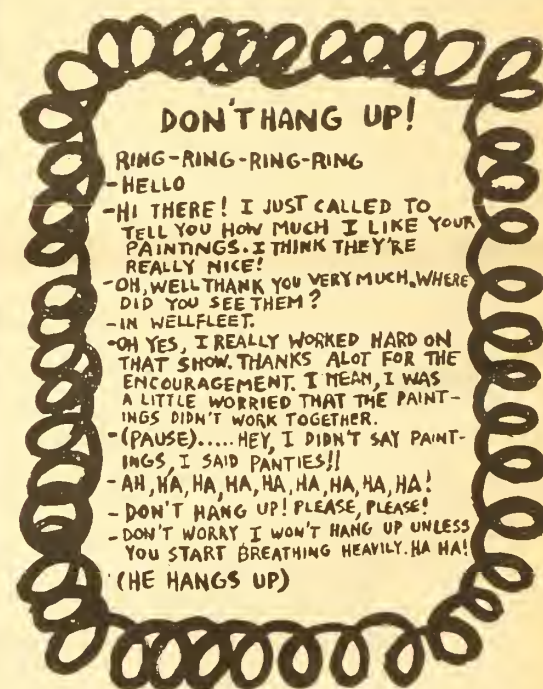 DON'T HANG UP!
RING-RING-RING-RING
-HELLO
-HI THERE! I JUST CALLED TO
TELL YOU HOW MUCH I LIKE YOUR
PAINTINGS. I THINK THEY'RE
REALLY NICE!
-OH, WELL THANK YOU VERY MUCH. WHERE
DID YOU SEE THEM?
-IN WELLFLEET.
-OH YES, I REALLY WORKED HARD ON
THAT SHOW. THANKS ALOT FOR THE
ENCOURAGEMENT. I MEAN, I WAS
A LITTLE WORRIED THAT THE PAINT-
INGS DIDN'T WORK TOGETHER.
-(PAUSE).....HEY, I DIDN'T SAY PAINT-
INGS, I SAID PANTIES!!
-AH, HA, HA, HA, HA, HA, HA, HA, HA!
-DON'T HANG UP! PLEASE, PLEASE!
-DON'T WORRY I WON'T HANG UP UNLESS
YOU START BREATHING HEAVILY. HA HA!
(HE HANGS UP)